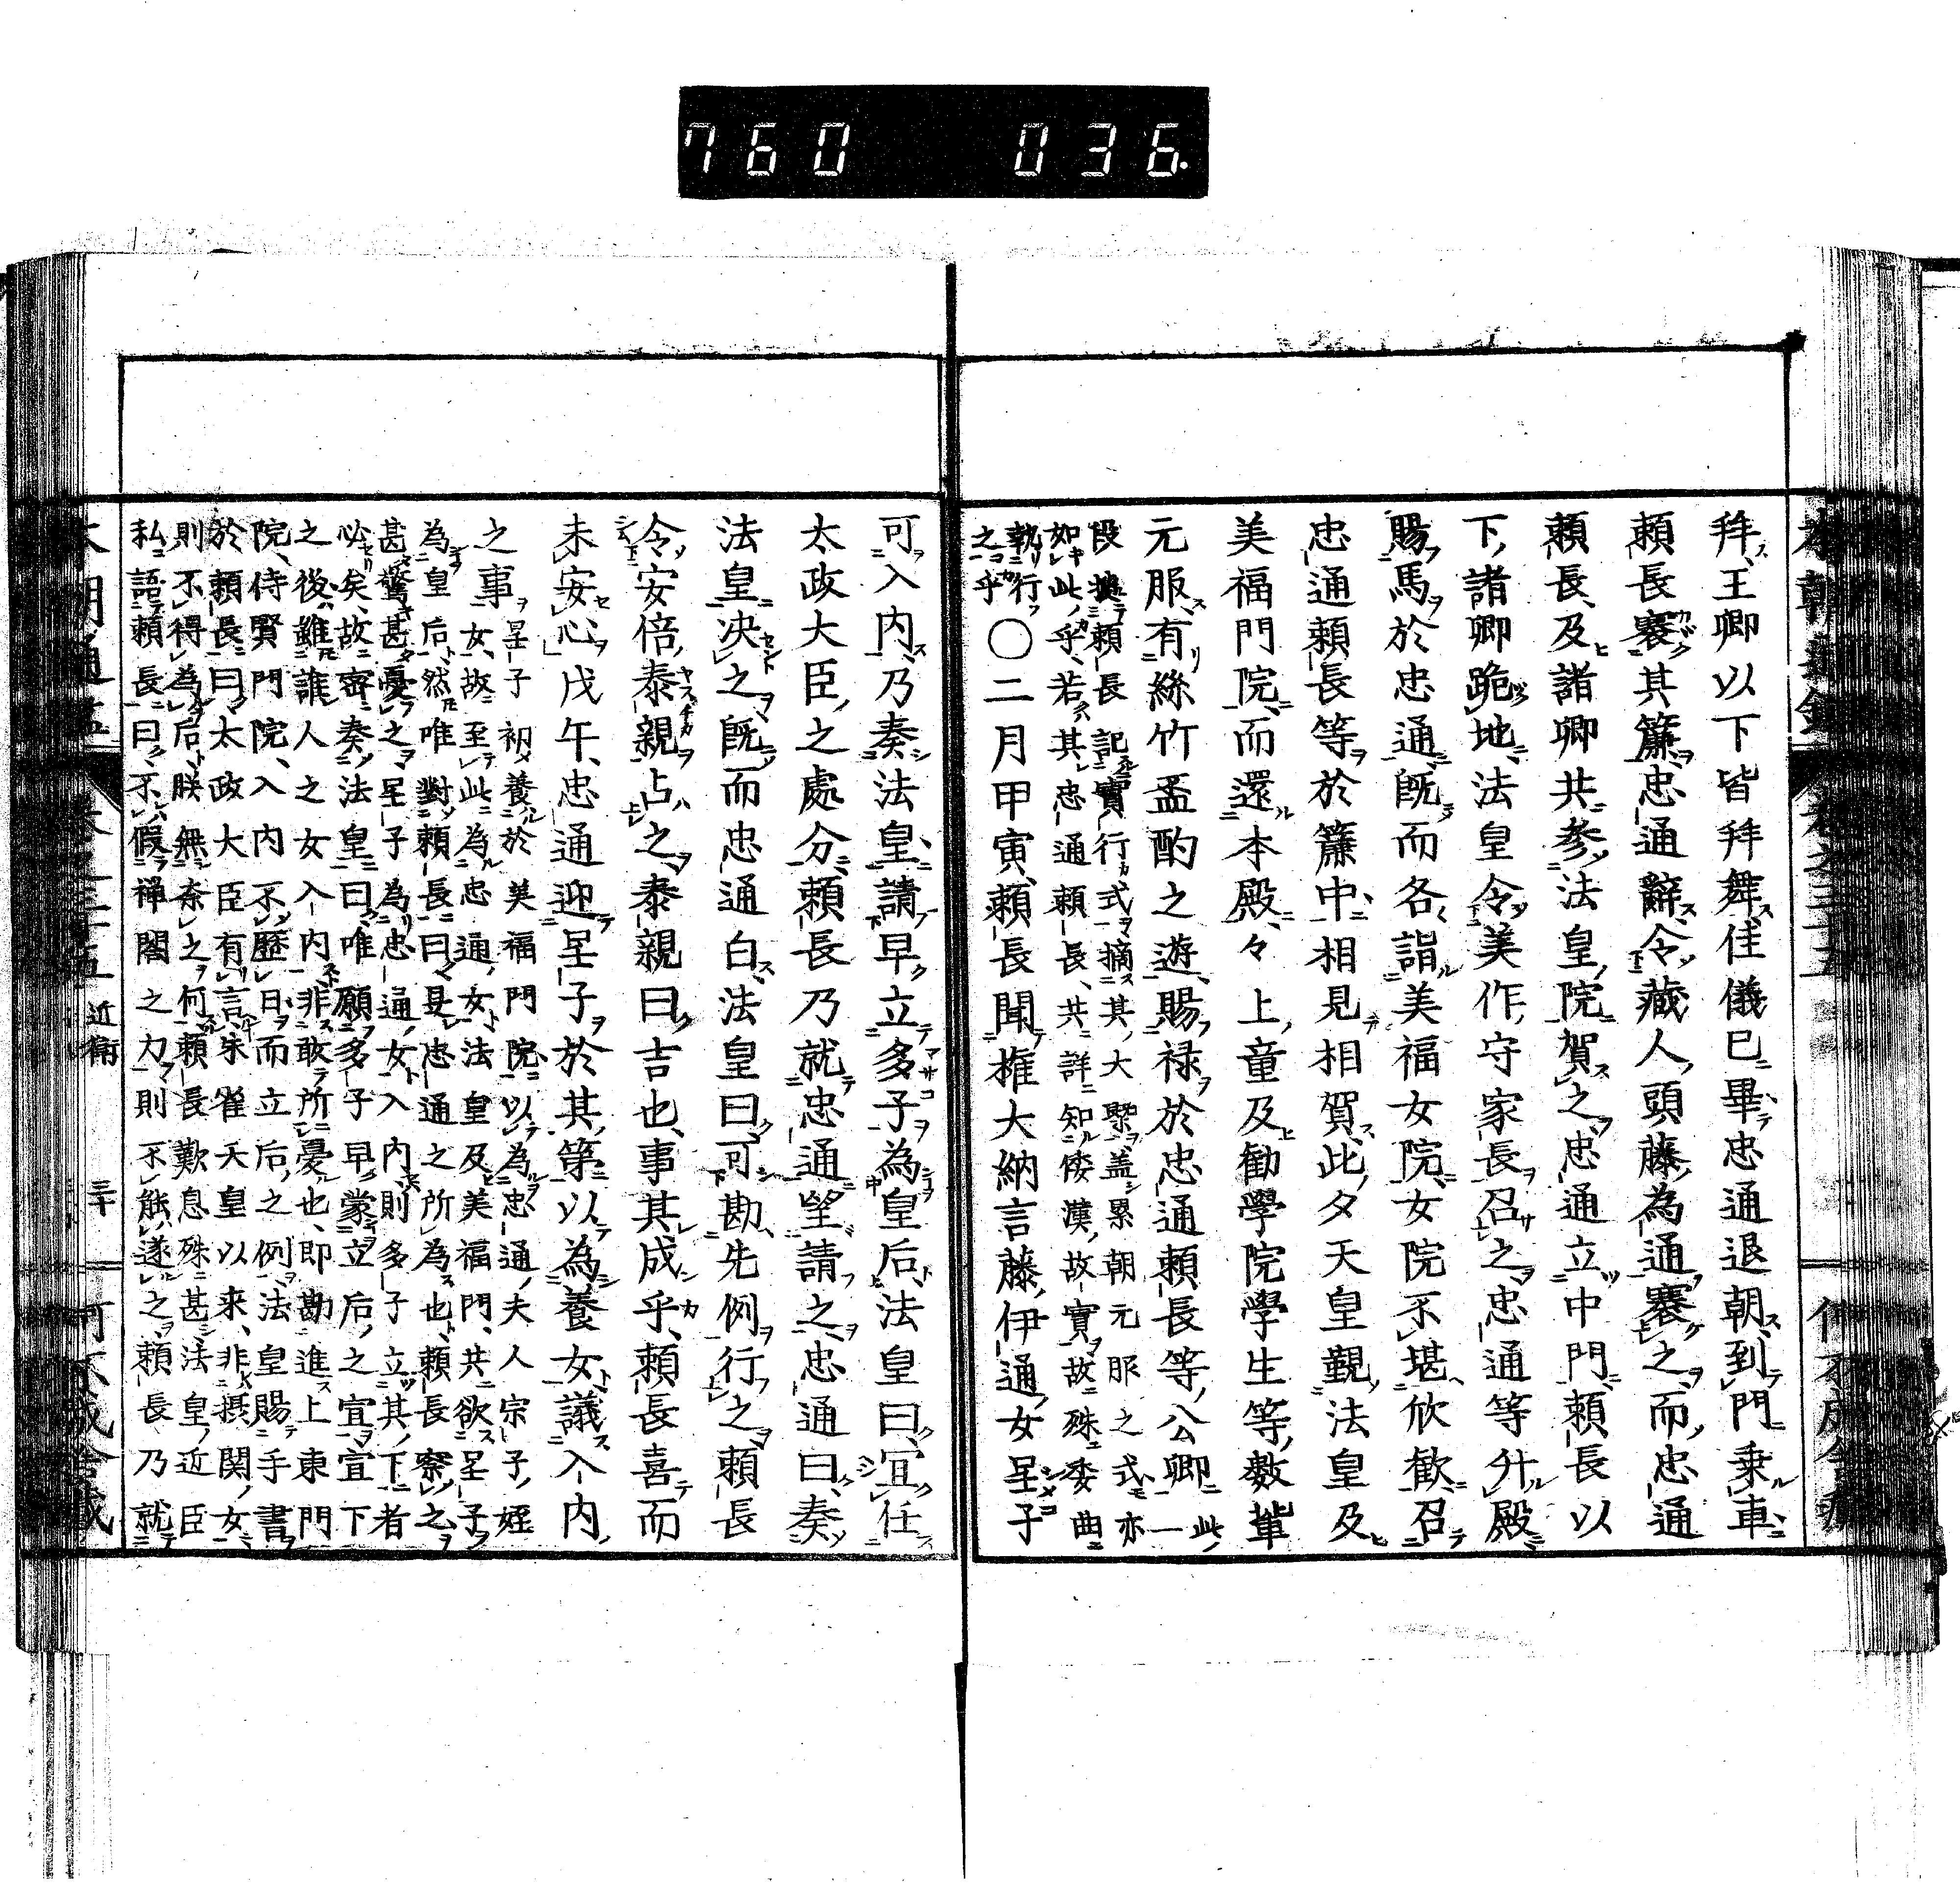 760 036.
拜王卿以下皆拜舞佳儀已畢忠通退朝到門乗車
頼長褰其簾忠通辭令藏人頭藤為通褰之而忠通
頼長及諸卿共参法皇院賀之忠通立中門頼長以
下諸卿跪地法皇令美作守家長召之忠通等升殿
賜馬於忠通既而各詣美福女院女院不堪欣歡召
忠通頼長等於簾中相見相賀此夕天皇覲法皇及
美福門院而還本殿々上童及勧學院學生等數輩
元服有絲竹盃酌之遊賜禄於忠通頼長等公卿此一
段據頼長記實行式摘其大槩盖累朝元服之式亦
如此乎若其忠通頼長共詳知倭漢故實故殊委曲
執行
之乎〇二月甲寅頼長聞権大納言藤伊通女呈子
可入内乃奏法皇請早立多子為皇后法皇曰宜任
太政大臣之處分頼長乃就忠通望請之忠通曰奏
法皇决之既而忠通白法皇曰可勘先例行之頼長
令安倍泰親占之泰親曰吉也事其成乎頼長喜而
未安心戊午忠通迎呈子於其第以為養女議入内
之事呈子初養於美福門院以為忠通夫人宗子姪
女故至此為忠通女法皇及美福門共欲呈子
為皇后然唯對頼長曰是忠通之所為也頼長察之
甚驚甚憂之呈子為忠通女入内則多子立其下者
必矣故密奏法皇曰唯願多子早蒙立后之宜宣下
之後雖誰人之女入内非敢所憂也即勘進上東門
院侍賢門院入内不歴日而立后之例法皇賜手書
於頼長曰太政大臣有言朱雀天皇以来非摂関女
則不得為后朕無奈之何頼長歎息殊甚法皇近臣
私語頼長曰不假禅閤之力則不能遂之頼長乃就
近衛 三十